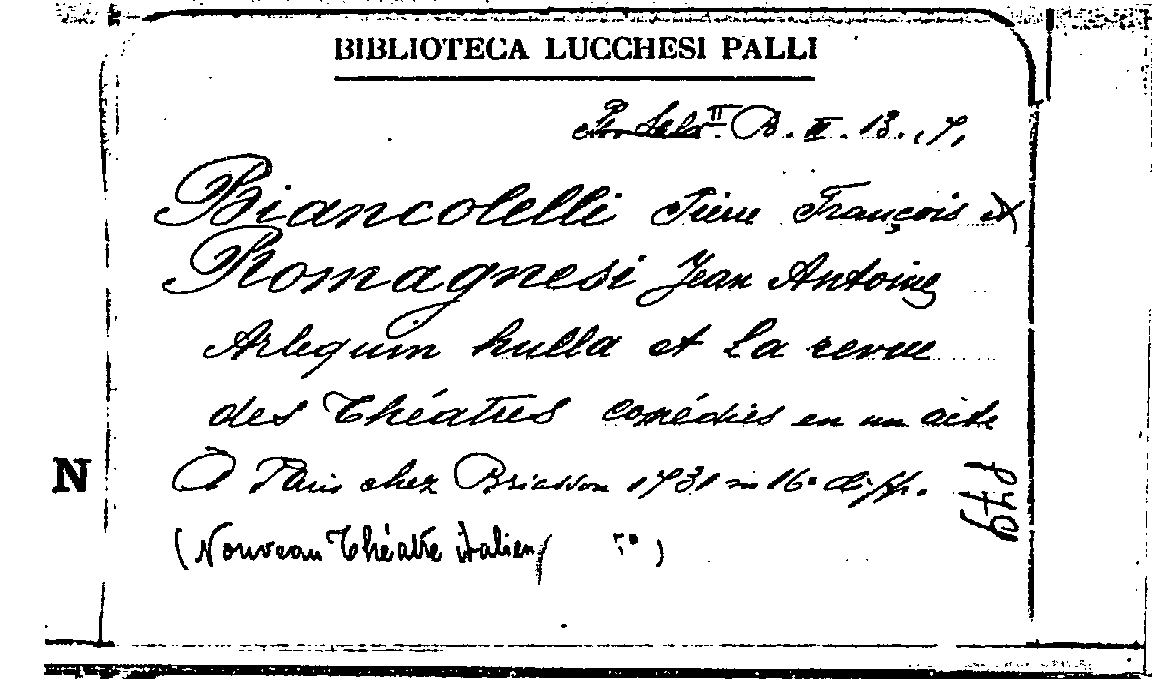 BIBLIOTECA LUCCHESI PALLI
II. B. II. 13. 7,
Biancolelli Pierre François et
Romagnesi Jean Antoine
Arlequin hulla et La revue
des Théatres comédies en un acte
N
À Paris chez Briasson 1731 in 16° di pp.
(Nouveau Théatre italien )